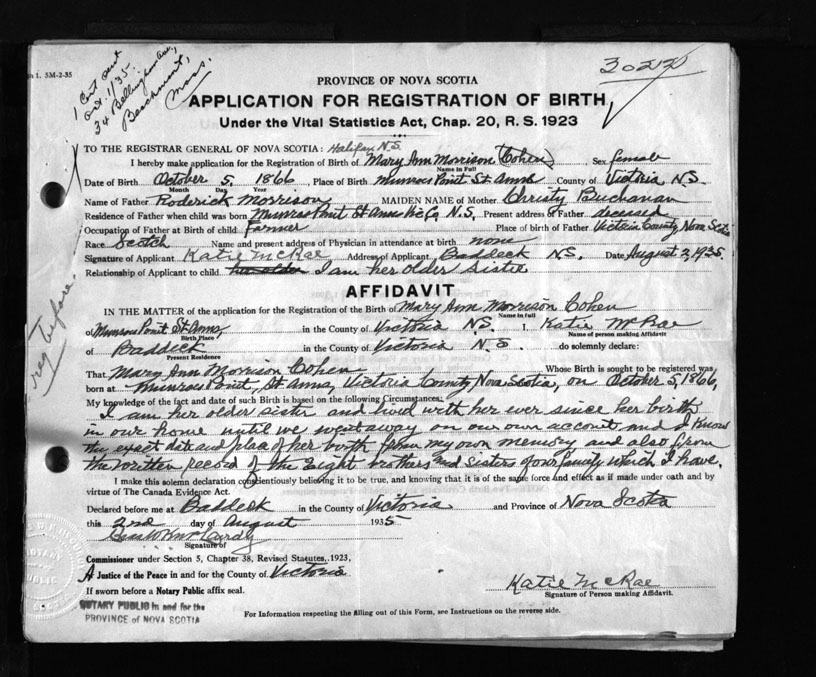 m 1. 5M-2-35
1 Cert sent
Oct. 1/35.
34 Bellingham Ave.,
Beachmont,
Mass.
30220
PROVINCE OF NOVA SCOTIA
APPLICATION FOR REGISTRATION OF BIRTH
Under the Vital Statistics Act, Chap. 20, R. S. 1923
TO THE REGISTRAR GENERAL OF NOVA SCOTIA: Halifax N.S.
I hereby make application for the Registration of Birth of Mary Ann Morrison (Cohen) Sex female
Name in Full
Date of Birth October 5, 1866, Place of Birth Munroes Point St Anns County of Victoria N.S.
Month Day Year
Name of Father Roderick Morrison MAIDEN NAME of Mother Christy Buchanan
Residence of Father when child was born Munroes Point St Anns Vic Co N.S. Present address of Father deceased
Occupation of Father at Birth of child Farmer Place of birth of Father Victoria County, Nova Scotia
Race Scotch Name and present address of Physician in attendance at birth none
Signature of Applicant Katie McRae Address of Applicant Baddeck N.S. Date August 2, 1935.
Relationship of Applicant to child I am her older Sister
AFFIDAVIT
IN THE MATTER of the application for the Registration of the Birth of Mary Ann Morrison Cohen
Name in full
of Munroes Point St Anns in the County of Victoria N.S. I, Katie McRae
Birth Place Name of person making Affidavit
of Baddeck in the County of Victoria N.S. do solemnly declare:
Present Residence
That Mary Ann Morrison Cohen Whose Birth is sought to be registered was
born at Munroes Point, St Anns, Victoria County, Nova Scotia, on October 5, 1866,
My knowledge of the fact and date of such Birth is based on the following Circumstances:
I am her older sister and lived with her ever since her birth
in our home until we went away on our own account and I know
the exact date and place of her birth from my own memory and also from
the written record of the Eight brothers and sisters of our family which I have.
I make this solemn declaration conscientiously believing it to be true, and knowing that it is of the same force and effect as if made under oath and by
virtue of The Canada Evidence Act.
Declared before me at Baddeck in the County of Victoria and Province of Nova Scotia
this 2nd day of August 1935
Signature of
Commissioner under Section 5, Chapter 38, Revised Statutes, 1923,
A Justice of the Peace in and for the County of Victoria
If sworn before a Notary Public affix seal.
Katie McRae
Signature of Person making Affidavit.
NOTARY PUBLIC in and for the
PROVINCE of NOVA SCOTIA
For Information respecting the filling out of this Form, see Instructions on the reverse side.
reg before.